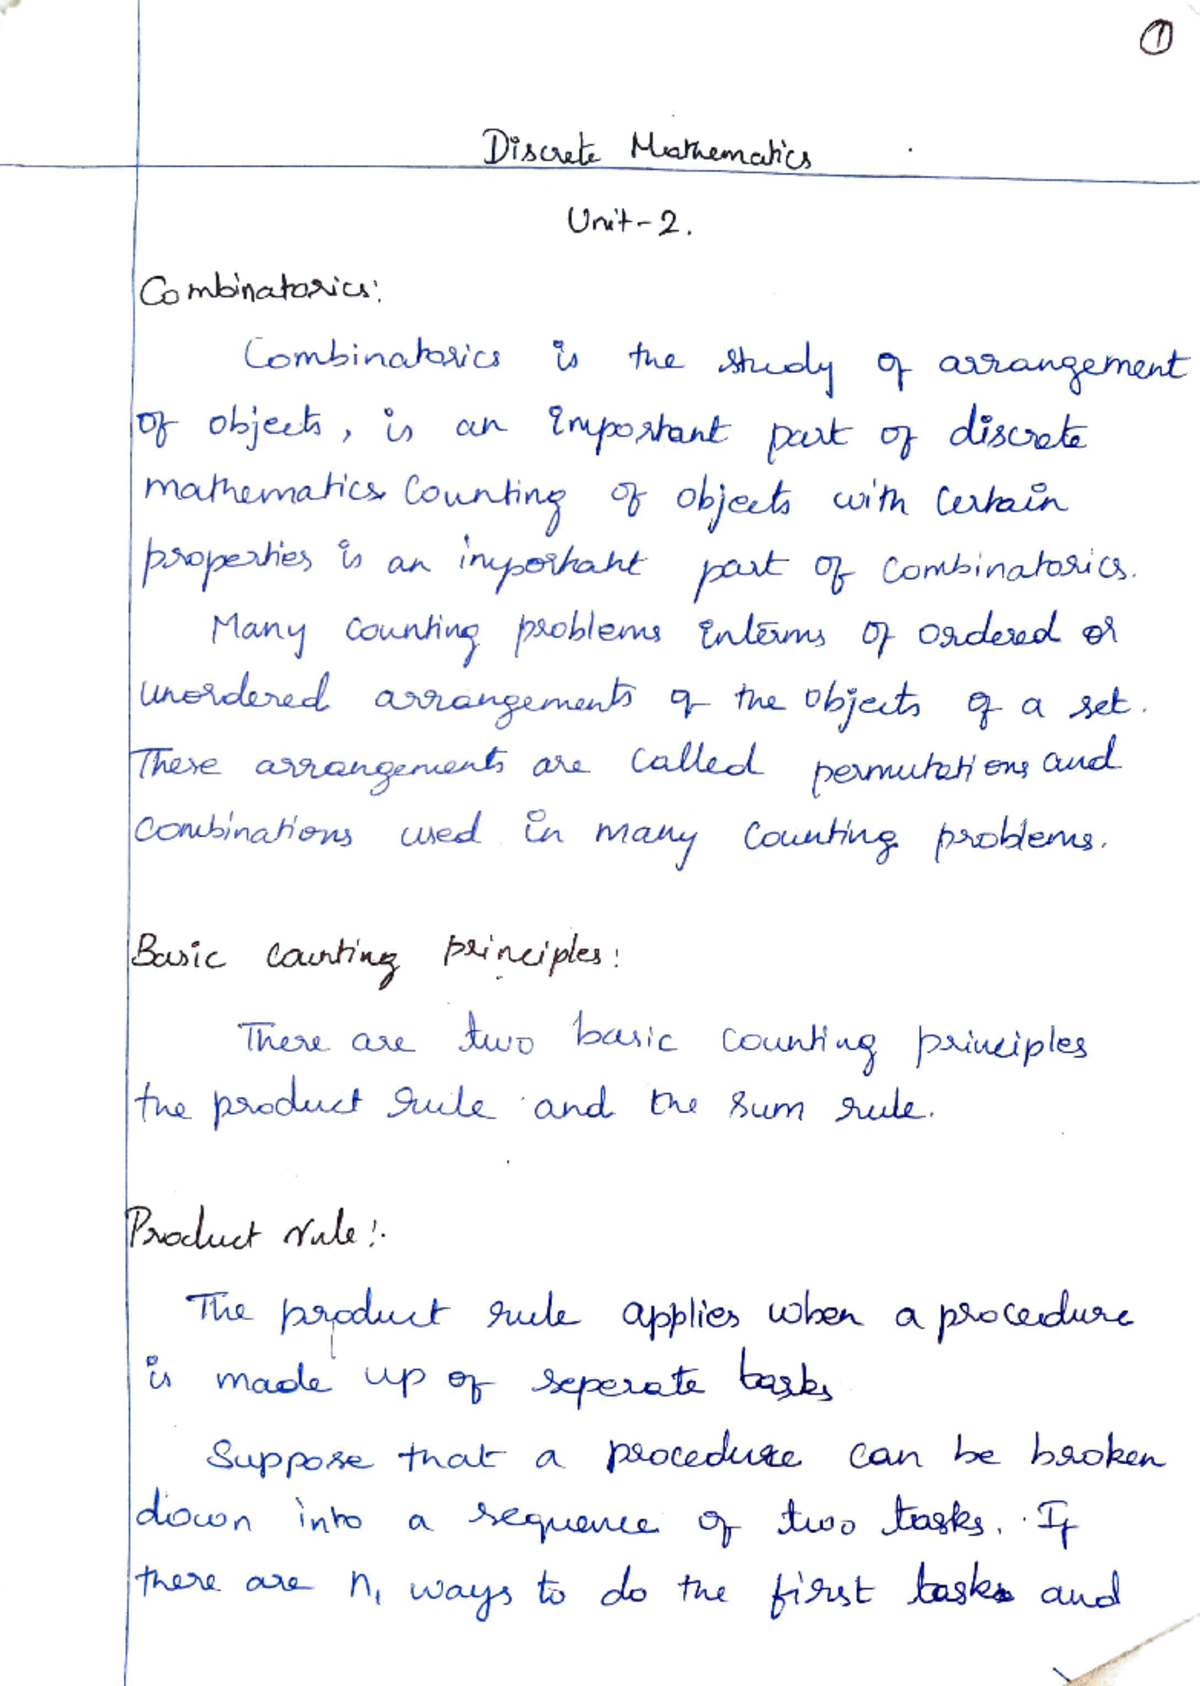 1
Discrete Mathematics
Unit-2.
Combinatorics:
Combinatorics is the study of arrangement
of objects, is an important part of discrete
mathematics. Counting of objects with certain
properties is an important part of combinatorics.
Many counting problems interms of ordered or
unordered arrangements of the objects of a set.
These arrangements are called permutations and
combinations used in many counting problems.
Basic counting principles:
There are two basic counting principles
the product rule and the sum rule.
Product rule:-
The product rule applies when a procedure
is made up of seperate tasks
Suppose that a procedure can be broken
down into a sequence of two tasks. If
there are n₁ ways to do the first task and